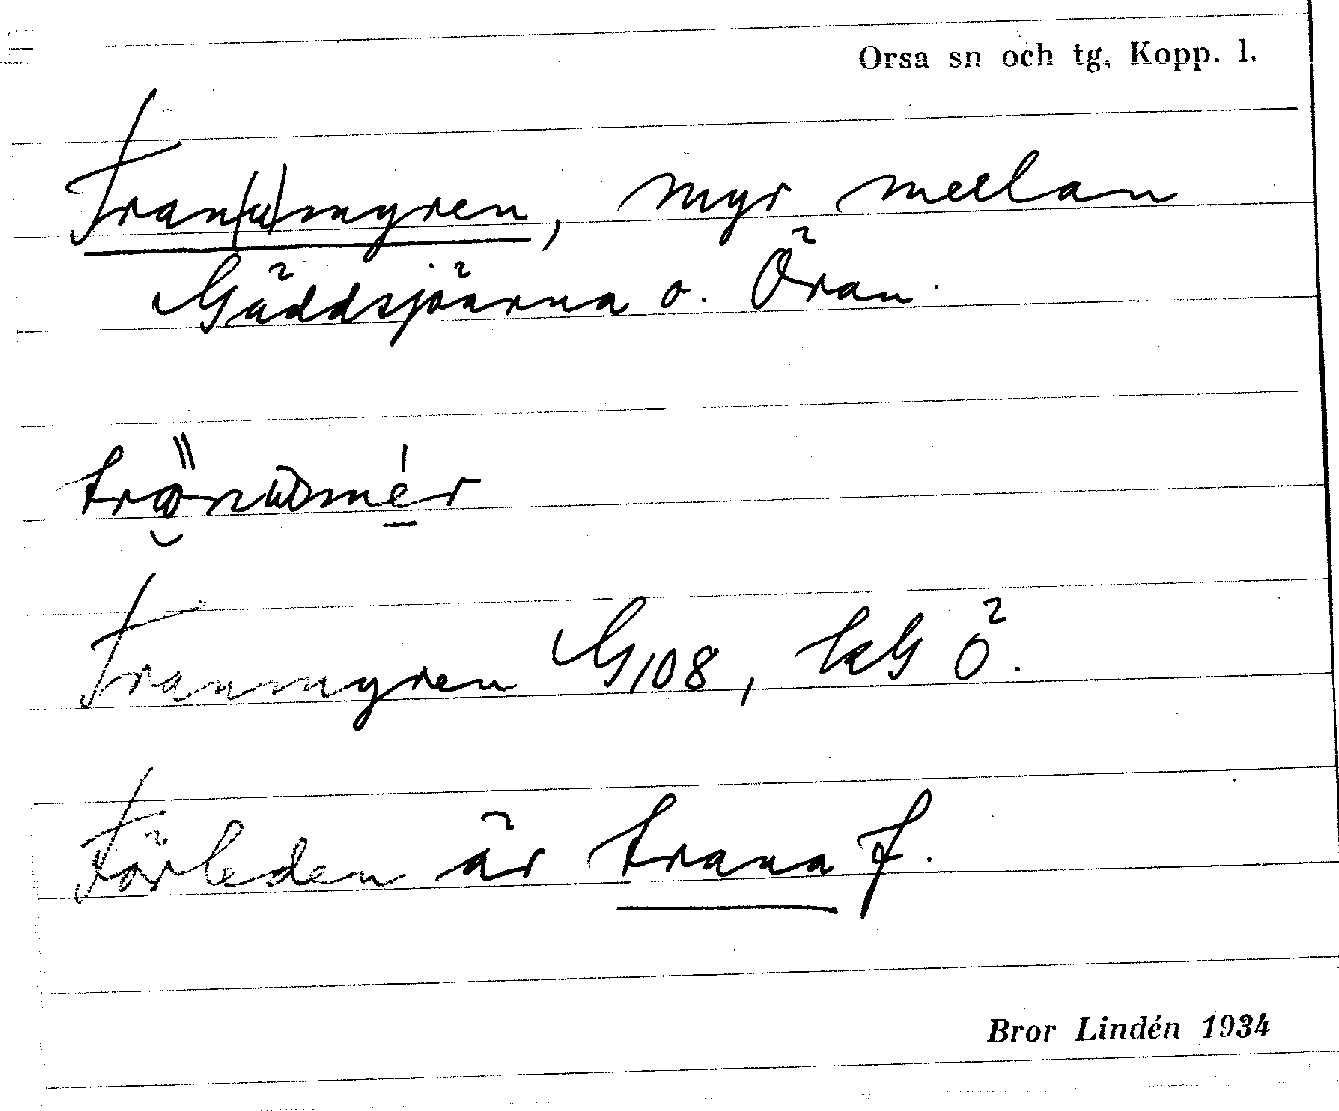 Orsa sn och tg, Kopp. l.
Tran(u)myren, myr mellan
Gäddsjöarna o. Öran.
Tranmyren G108, kG Ö.
Förleden är trana f.
Bror Lindén 1934